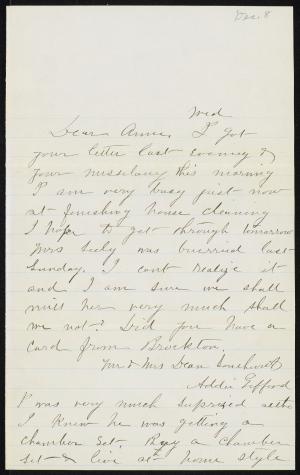 Dec. 8
Wed
Dear Anna, I got
your letter last evening &
your misselany this morning
I am very busy just now
at finishing house cleaning
I hope to get through tomorrow
Mrs Seely was burried last
Sunday. I cant realize it
and I am sure we shall
miss her very much shall
we not? Did you have a
card from Brockton.
Mr & Mrs Dean
Addie Gifford
I was very much suprised altho
I knew he was getting a
chamber set. Buy a chamber
set & live at home style